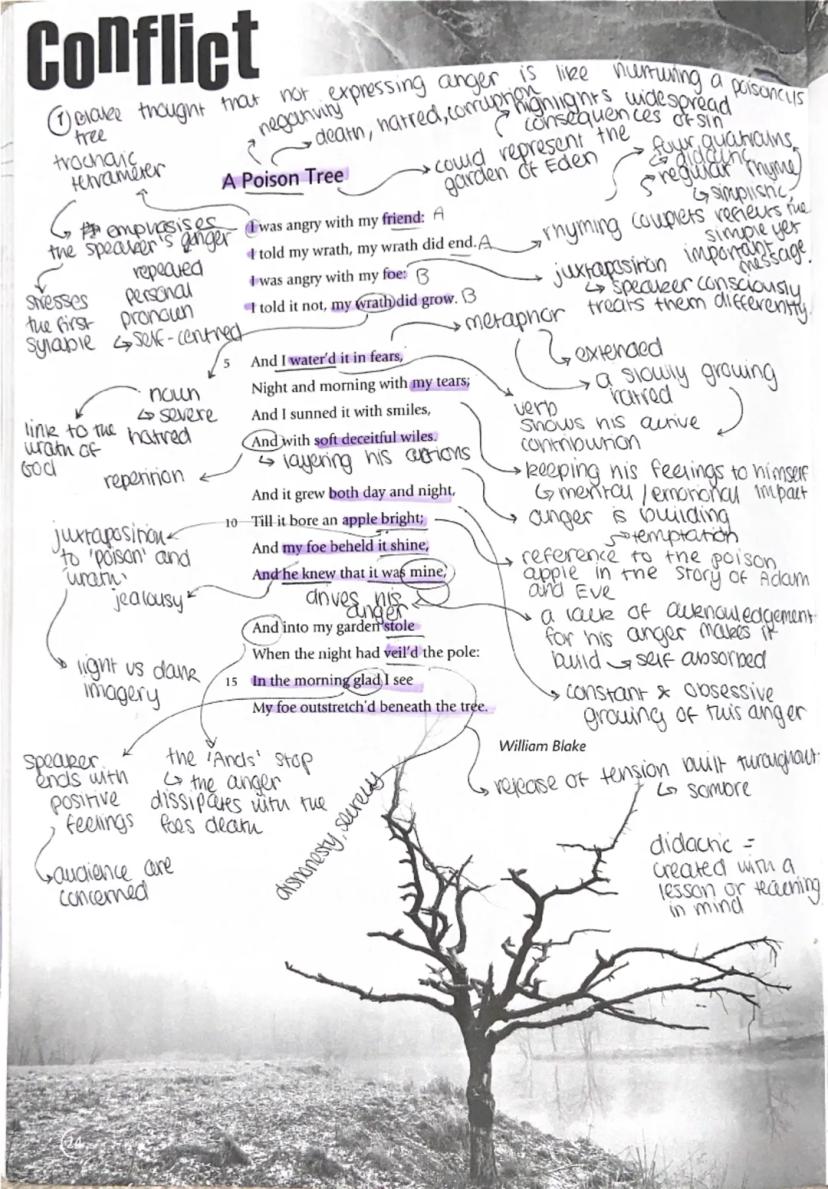 Conflict
① Blake thought that not expressing anger is like nurturing a poisonous
tree
negativity
death, hatred, corruption
highlights widespread
consequences of sin
could represent the
garden of Eden
four quatrains
didactic
regular rhyme
simplistic
trochaic
tetrameter
A Poison Tree
I was angry with my friend: A
I told my wrath, my wrath did end. A
I was angry with my foe: B
I told it not, my wrath did grow. B
emphasises
the speaker's anger
stresses
the first
sylable
repeated
personal
pronoun
self-centred
rhyming couplets reflects the
simple yet
important
message.
juxtaposition
speaker consciously
treats them differently
metaphor
extended
a slowly growing
hatred
5 And I water'd it in fears,
Night and morning with my tears;
And I sunned it with smiles,
And with soft deceitful wiles.
layering his actions
noun
severe
hatred
link to the
wrath of
God
repetition
verb
shows his active
contribution
keeping his feelings to himself
mental / emotional impact
anger is building
temptation
And it grew both day and night,
10 Till it bore an apple bright;
And my foe beheld it shine,
And he knew that it was mine,
drives his
anger
juxtaposition
to 'poison' and
'wrath'
jealousy
light vs dark
imagery
reference to the poison
apple in the story of Adam
and Eve
a lack of acknowledgement
for his anger makes it
build
self absorbed
constant & obsessive
growing of this anger
And into my garden stole
When the night had veil'd the pole:
15 In the morning glad I see
My foe outstretch'd beneath the tree.
William Blake
speaker
ends with
positive
feelings
audience are
concerned
the 'Ands' stop
the anger
dissipates with the
foes death
dishonesty, secrecy
release of tension built throughout
sombre
didactic =
created with a
lesson or teaching
in mind